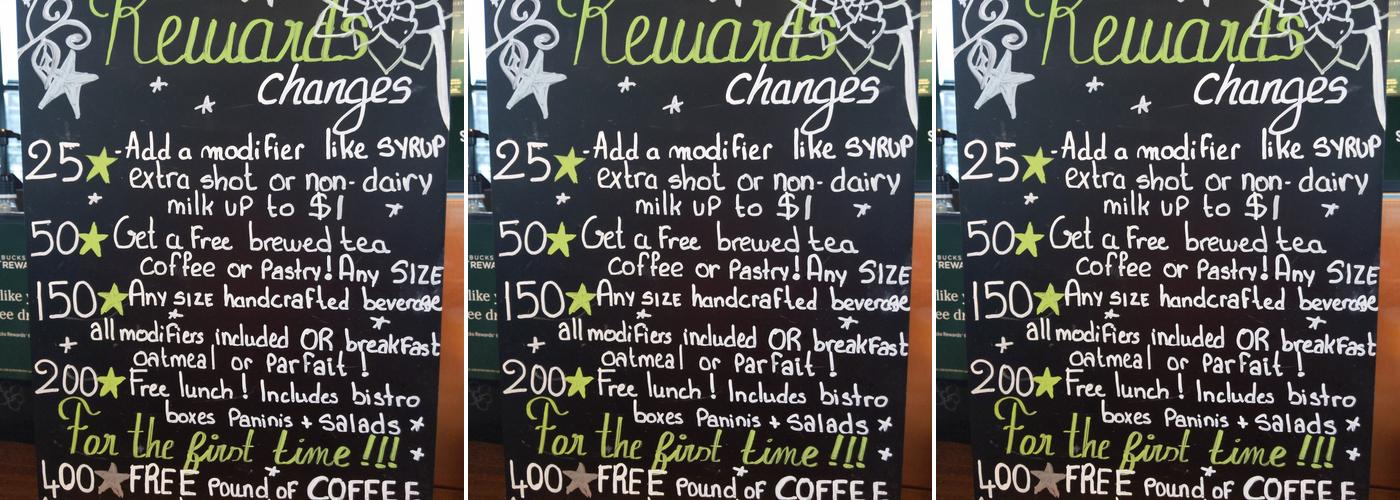 Rewards
changes
25 -Add a modifier like SYRUP
extra shot or non-dairy
milk up to $1
50 Get a Free brewed tea
coffee or Pastry! Any SIZE
150 Any SIZE handcrafted beverage
all modifiers included OR breakfast
oatmeal or Parfait!
200 Free lunch! Includes bistro
boxes Paninis + Salads
For the first time!!!
400 FREE Pound of COFFEE
Rewards
changes
25 -Add a modifier like SYRUP
extra shot or non-dairy
milk up to $1
50 Get a Free brewed tea
coffee or Pastry! Any SIZE
150 Any SIZE handcrafted beverage
all modifiers included OR breakfast
oatmeal or Parfait!
200 Free lunch! Includes bistro
boxes Paninis + Salads
For the first time!!!
400 FREE Pound of COFFEE
Rewards
changes
25 -Add a modifier like SYRUP
extra shot or non-dairy
milk up to $1
50 Get a Free brewed tea
coffee or Pastry! Any SIZE
150 Any SIZE handcrafted beverage
all modifiers included OR breakfast
oatmeal or Parfait!
200 Free lunch! Includes bistro
boxes Paninis + Salads
For the first time!!!
400 FREE Pound of COFFEE